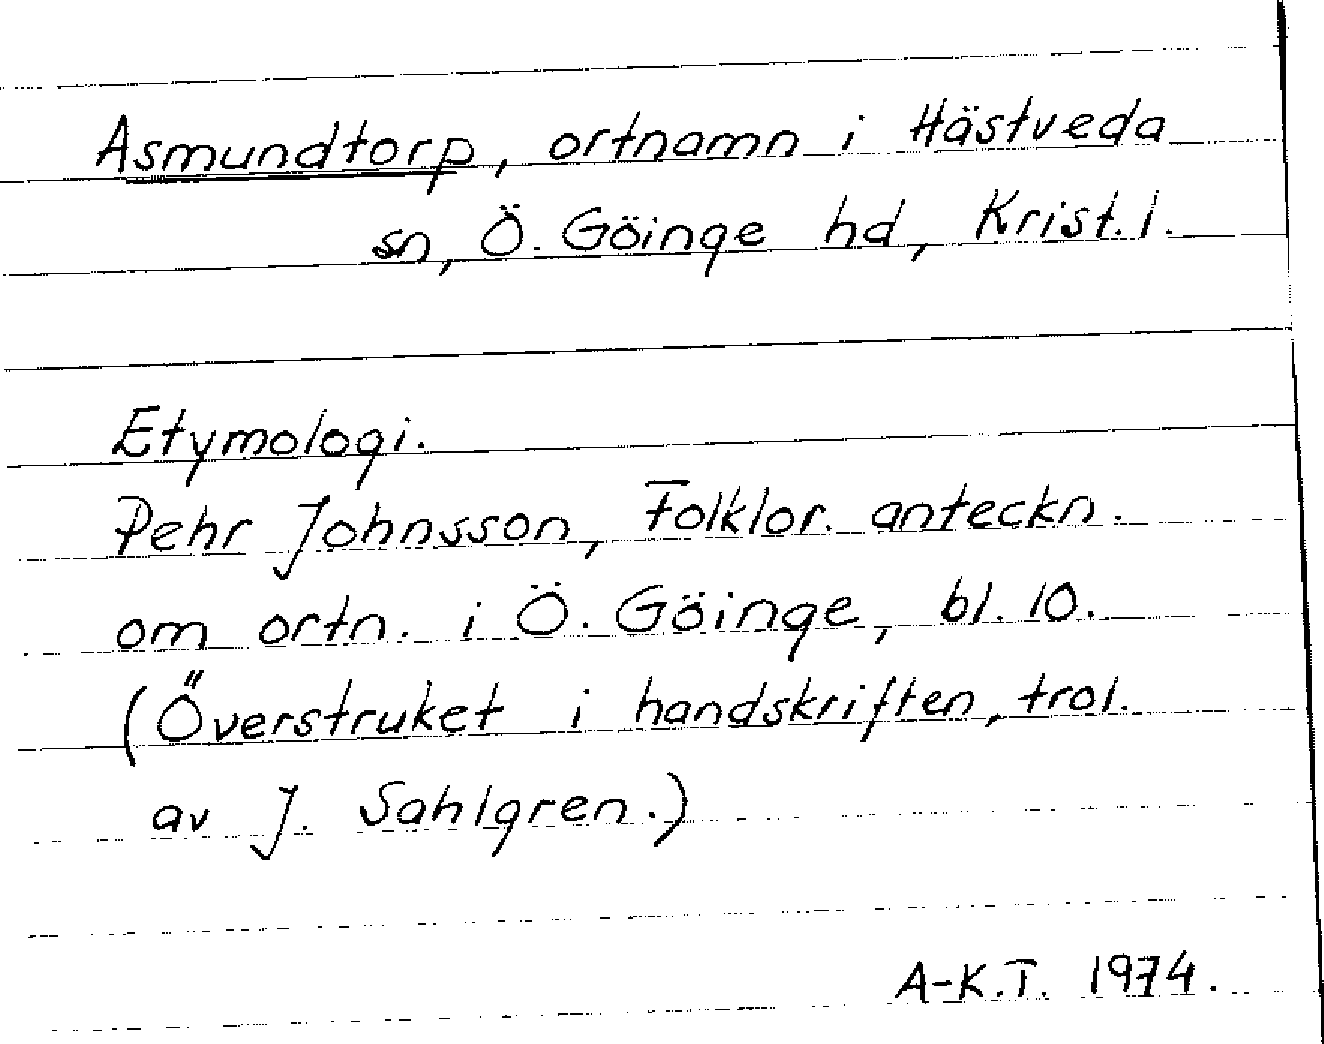 Asmundtorp, ortnamn i Hästveda
sn, Ö. Göinge hd, Krist. l.
Etymologi.
Pehr Johnsson, Folklor. anteckn.
om ortn. i Ö. Göinge, bl. 10.
(Överstruket i handskriften, trol.
av J. Sahlgren.)
A-K.T. 1974.